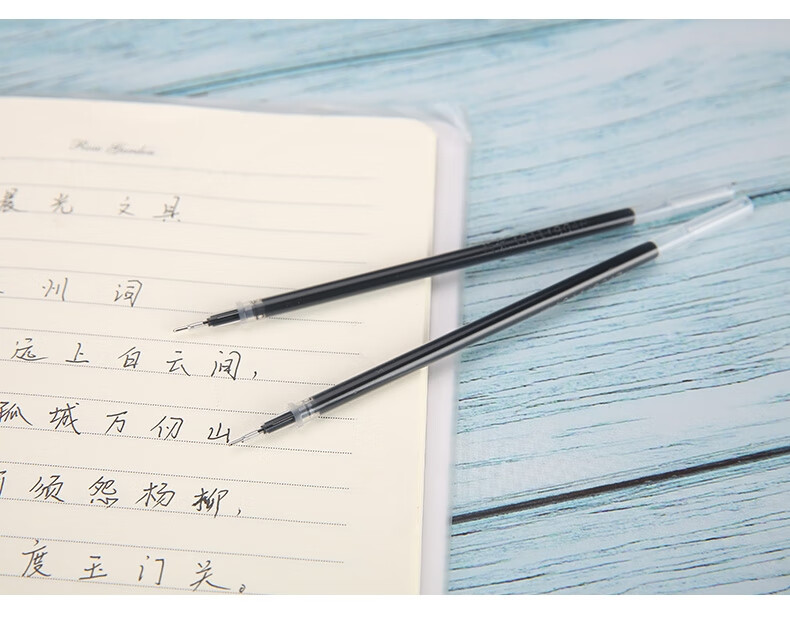 Rose Garden
晨光 文具
州词
远上白云间,
孤城万仞山
须怨杨柳,
度玉门关。